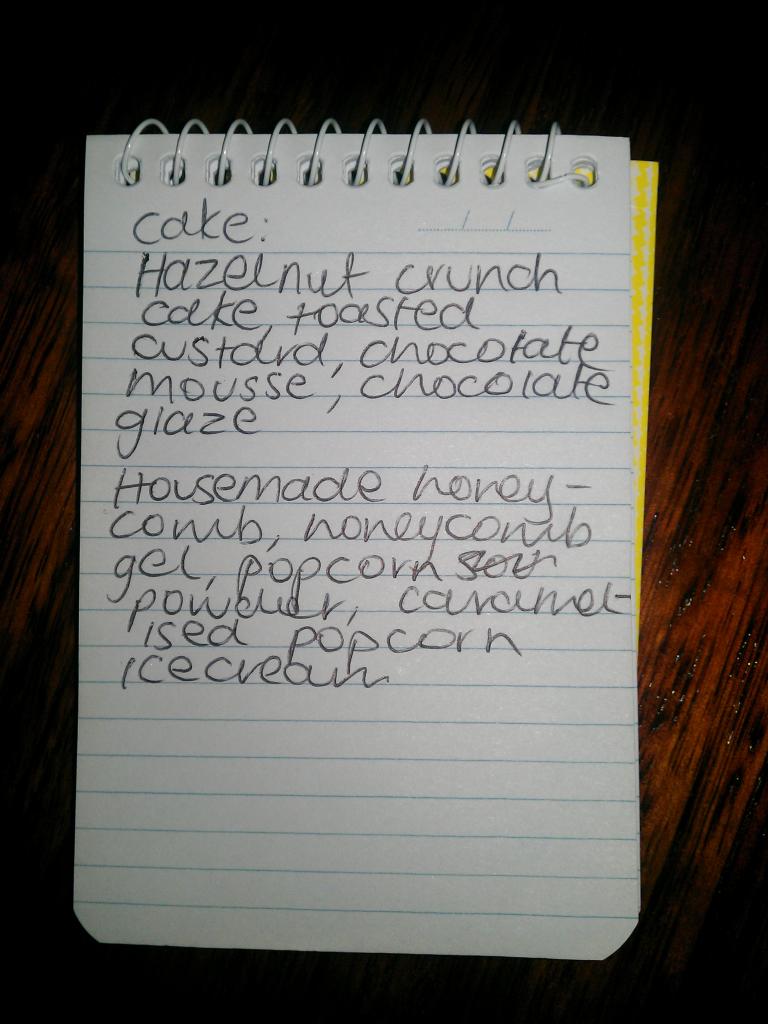 cake:
Hazelnut crunch
cake, toasted
custard, chocolate
mousse, chocolate
glaze
Housemade honey-
comb, honeycomb
gel, popcorn
powder, caramel-
ised popcorn
icecream